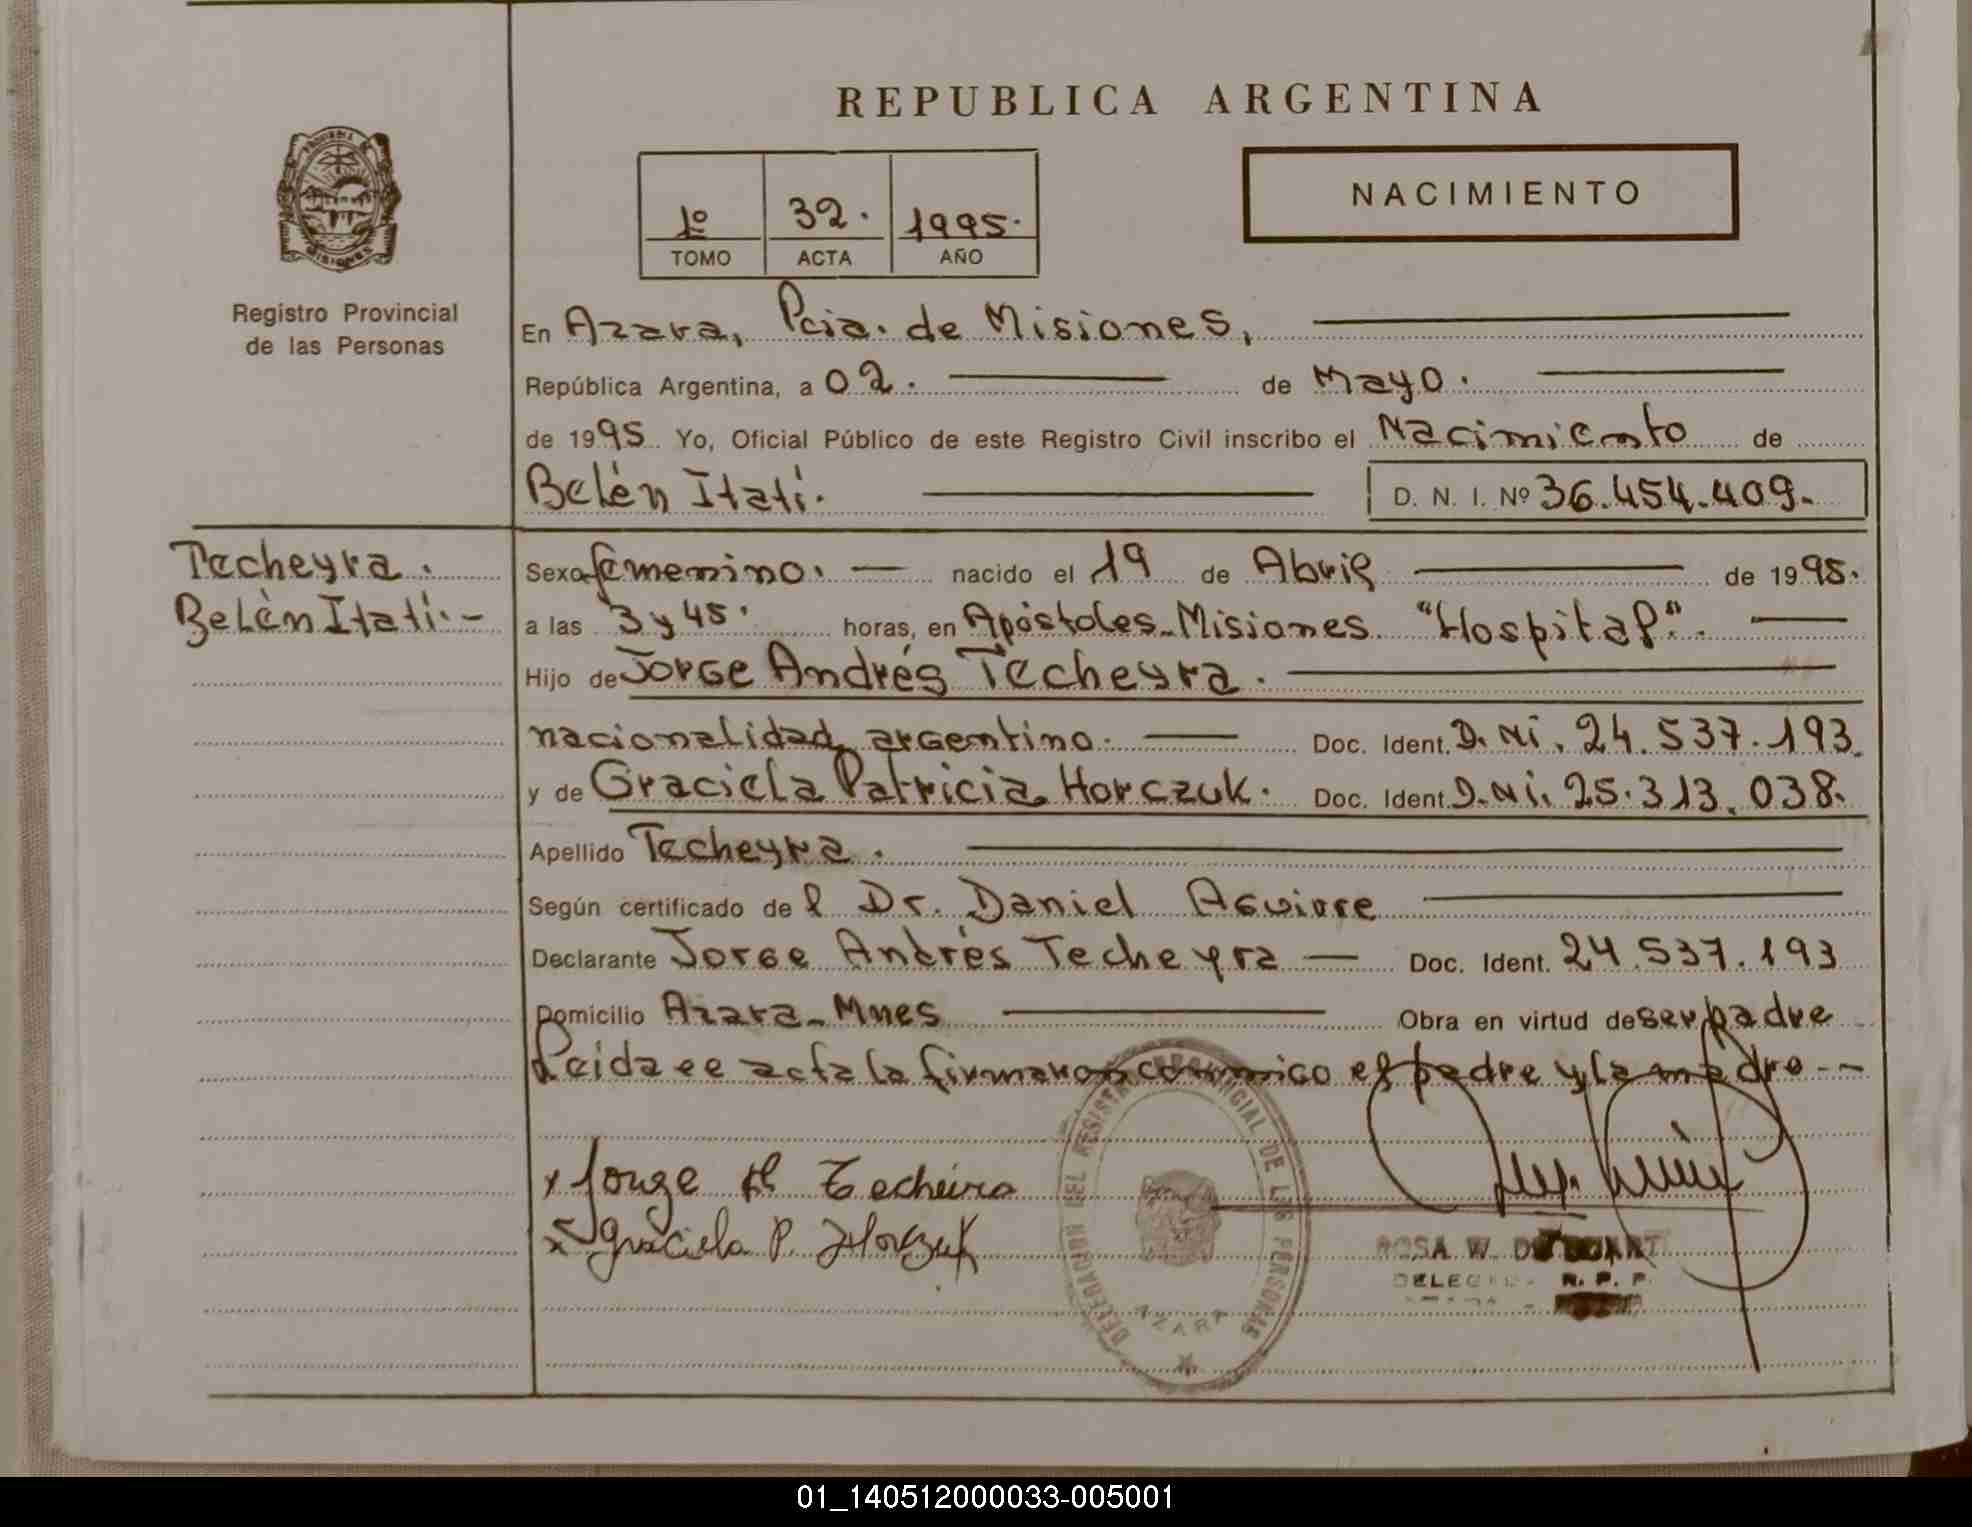 REPUBLICA ARGENTINA
NACIMIENTO
1º 32. 1995.
TOMO ACTA AÑO
Registro Provincial
de las Personas
En Azara, Pcia. de Misiones,
República Argentina, a 02. de Mayo.
de 1995 Yo, Oficial Público de este Registro Civil inscribo el Nacimiento de
Belén Itatí. D. N. I. Nº 36.454.409.
Techeyra.
Belén Itatí.-
Sexo femenino. nacido el 19 de Abril de 1995.
a las 3 y 45' horas, en Apóstoles-Misiones "Hospital".
Hijo de Jorge Andrés Techeyra.
nacionalidad argentino. Doc. Ident. D.Ni. 24.537.193.
y de Graciela Patricia Horczuk. Doc. Ident. D.Ni. 25.313.038.
Apellido Techeyra.
Según certificado del Dr. Daniel Aguirre
Declarante Jorge Andrés Techeyra Doc. Ident. 24.537.193
Domicilio Azara-Mnes Obra en virtud de ser padre
Leida ee acta la firmaron conmigo el padre y la madre --
x Jorge A Techeira
x Graciela P. Horczuk
DELEGACION DEL REGISTRO PROVINCIAL DE LAS PERSONAS
AZARA
ROSA W. DE
R. P. P.
01_140512000033-005001